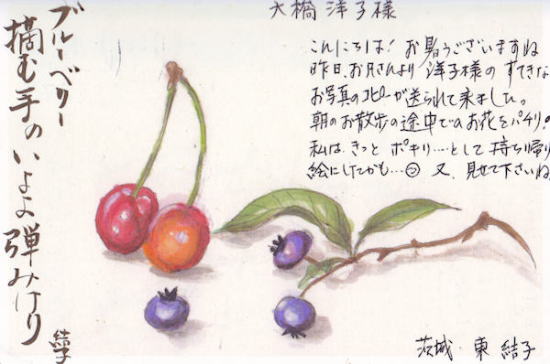 大橋洋子様
こんにちは！お暑うございますね
昨日、お兄さんより洋子様のすてきな
お写真のコピーが送られて来ました。
朝のお散歩の途中でのお花をパチリ。
私は、きっとポキリ……として持ち帰り
絵にしてかも…又、見せて下さいね
ブルーベリー
摘む手のいよよ弾みけり
結子
茨城・東 結子